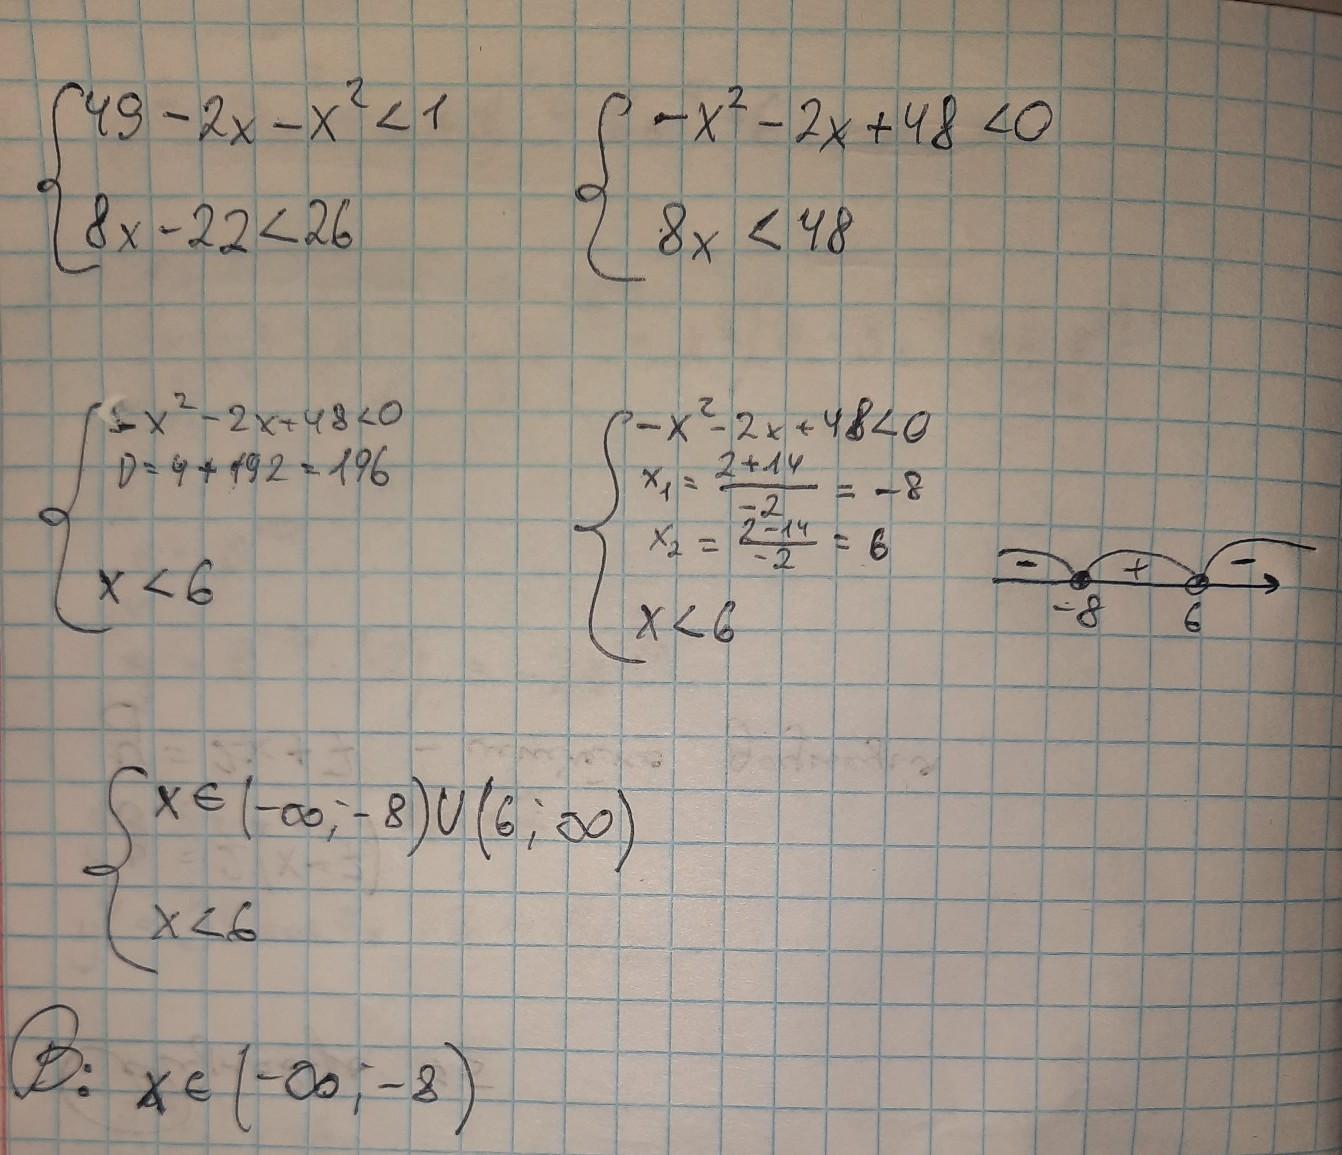 49 - 2x - x² < 1
8x - 22 < 26
-x² - 2x + 48 < 0
8x < 48
-x² - 2x + 48 < 0
D = 4 + 192 = 196
x < 6
-x² - 2x + 48 < 0
x₁ = (2+14)/(-2) = -8
x₂ = (2-14)/(-2) = 6
x < 6
- + -
-8 6
x ∈ (-∞; -8) ∪ (6; ∞)
x < 6
В: x ∈ (-∞; -8)